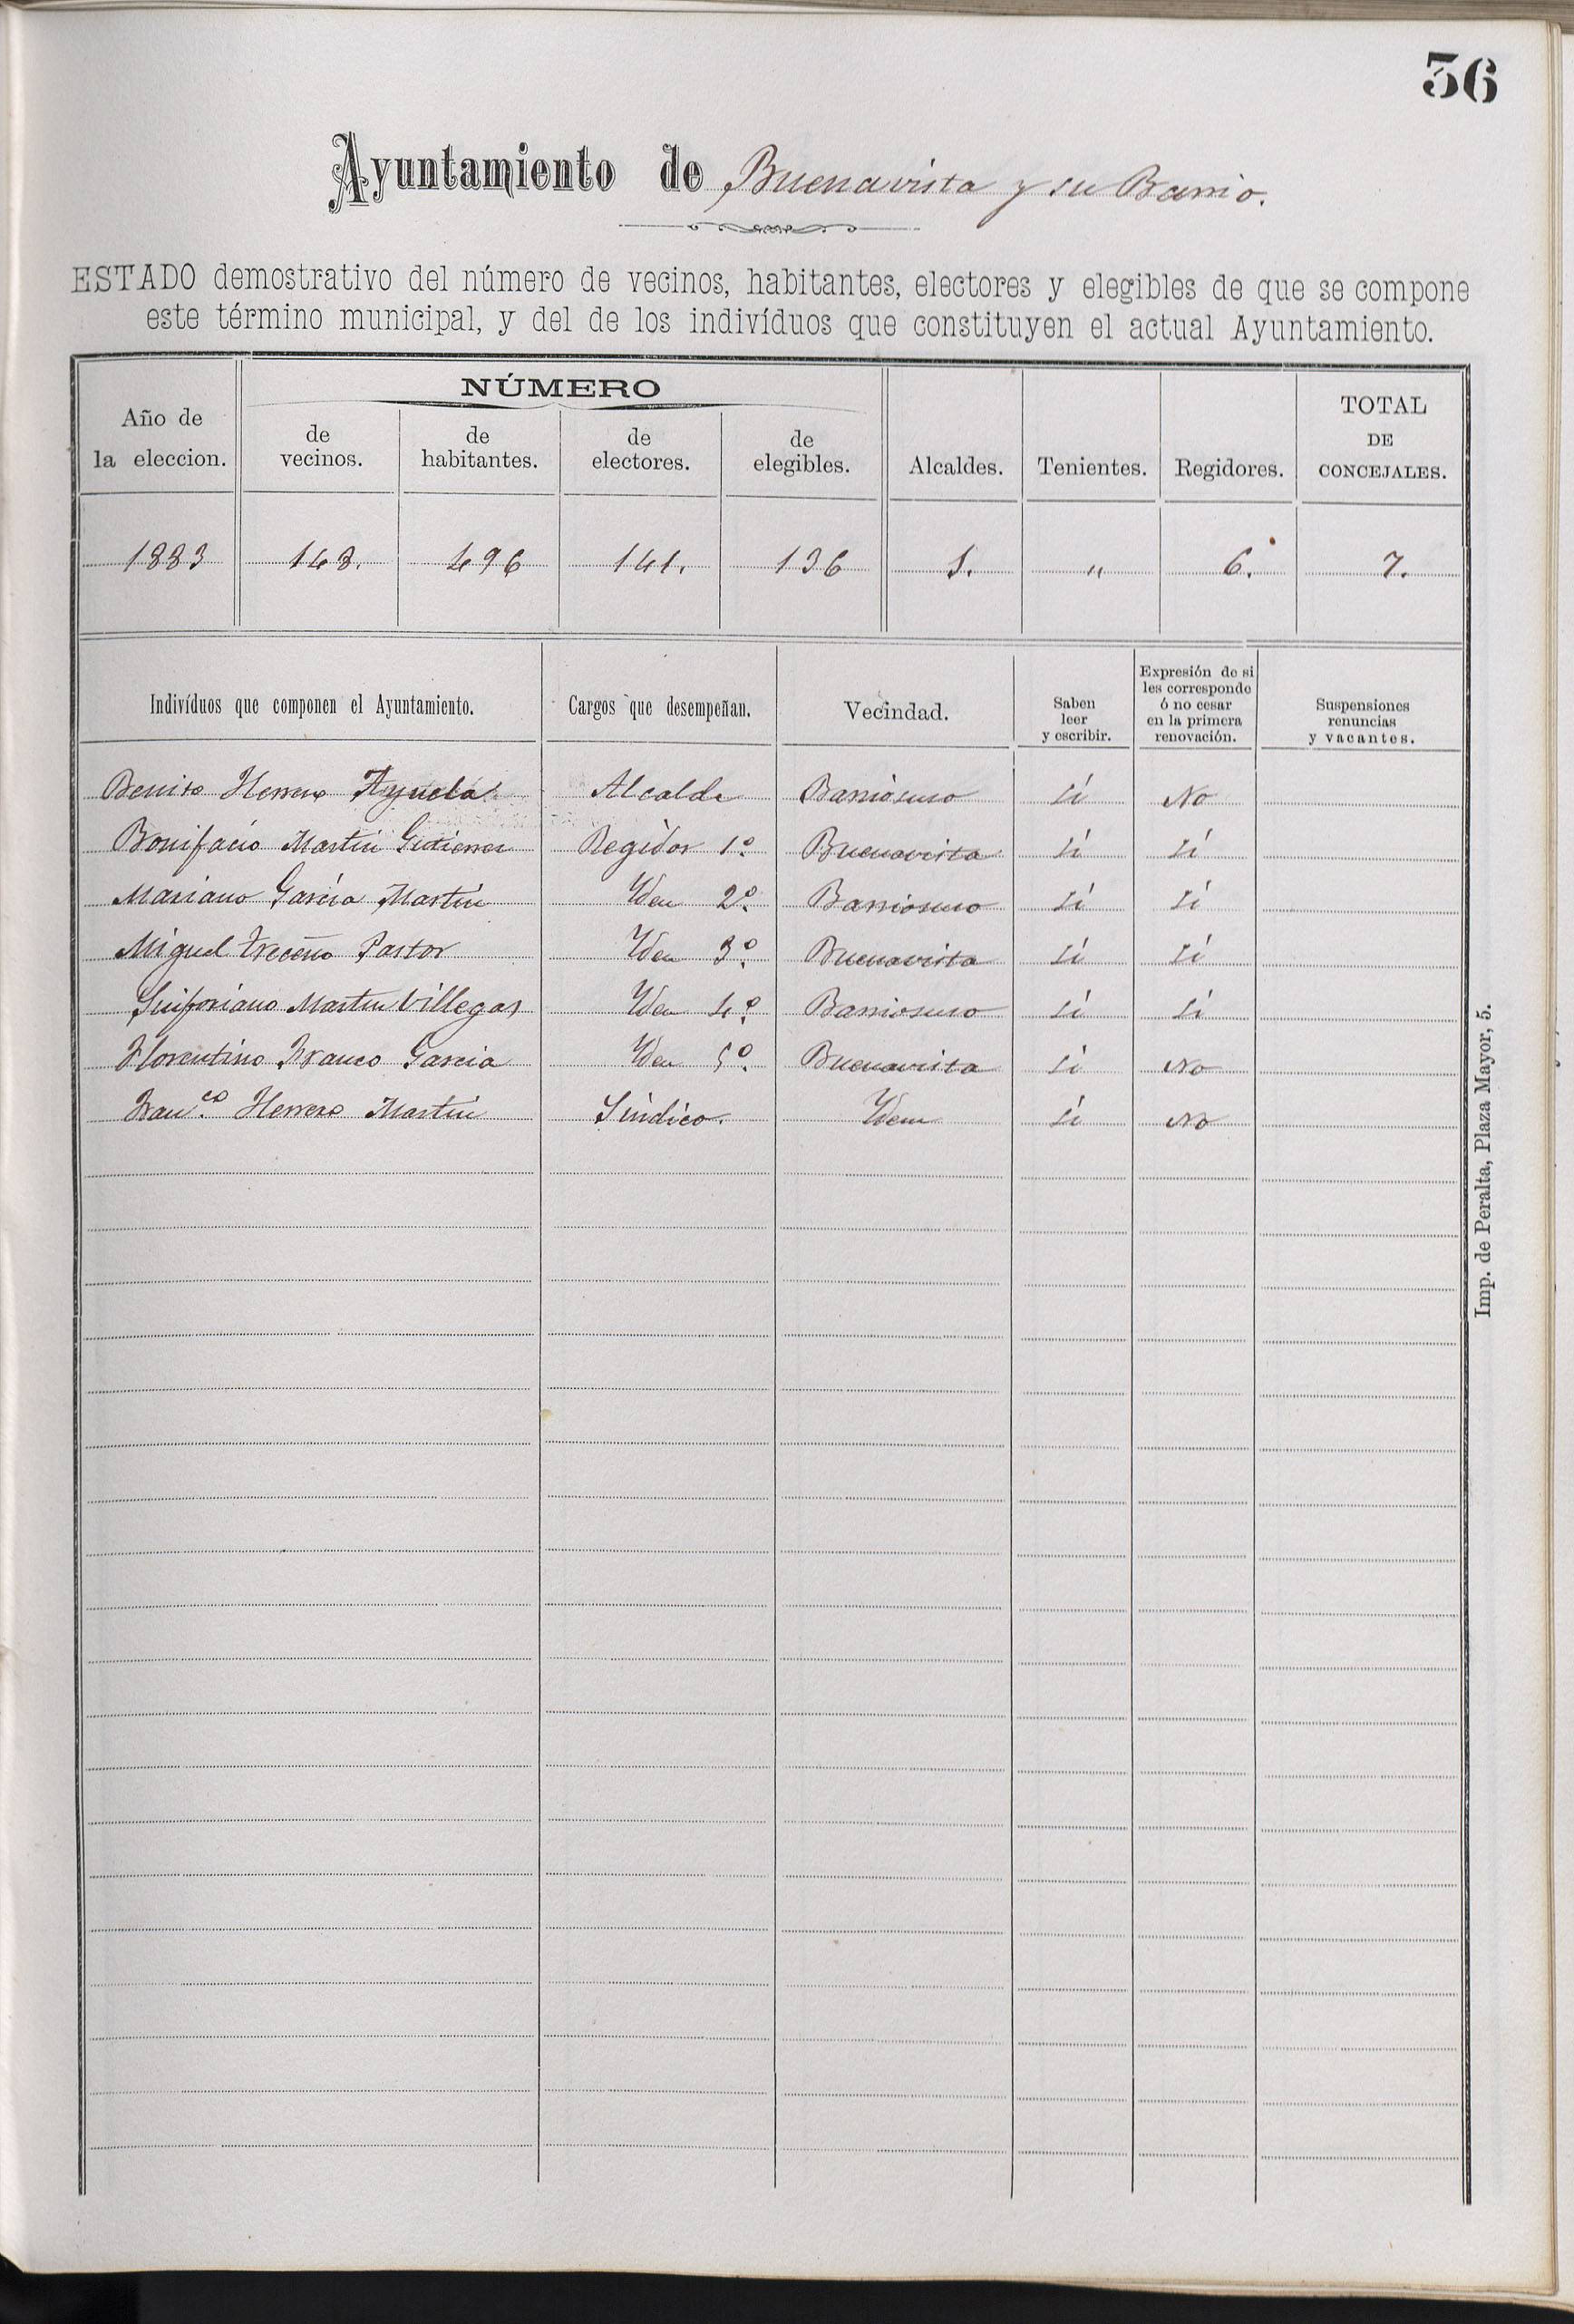 36
Ayuntamiento de Buenavista y su Barrio.
ESTADO demostrativo del número de vecinos, habitantes, electores y elegibles de que se compone
este término municipal, y del de los indivíduos que constituyen el actual Ayuntamiento.
NÚMERO
Año de la eleccion. de vecinos. de habitantes. de electores. de elegibles. Alcaldes. Tenientes. Regidores. TOTAL DE CONCEJALES.
1883 148. 496 141. 136 1. " 6. 7.
Indivíduos que componen el Ayuntamiento. Cargos que desempeñan. Vecindad. Saben leer y escribir. Expresión de si les corresponde ó no cesar en la primera renovación. Suspensiones renuncias y vacantes.
Benito Herrero Ayuela Alcalde Barriosuso Sí No
Bonifacio Martín Gutierrez Regidor 1º Buenavista Sí Sí
Mariano García Martín Idem 2º Barriosuso Sí Sí
Miguel Treceño Pastor Idem 3º Buenavista Sí Sí
Sinforiano Martín Villegas Idem 4º Barriosuso Sí Sí
Florentino Franco Garcia Idem 5º Buenavista Sí No
Fran.co Herrero Martín Síndico. Idem Sí No
Imp. de Peralta, Plaza Mayor, 5.